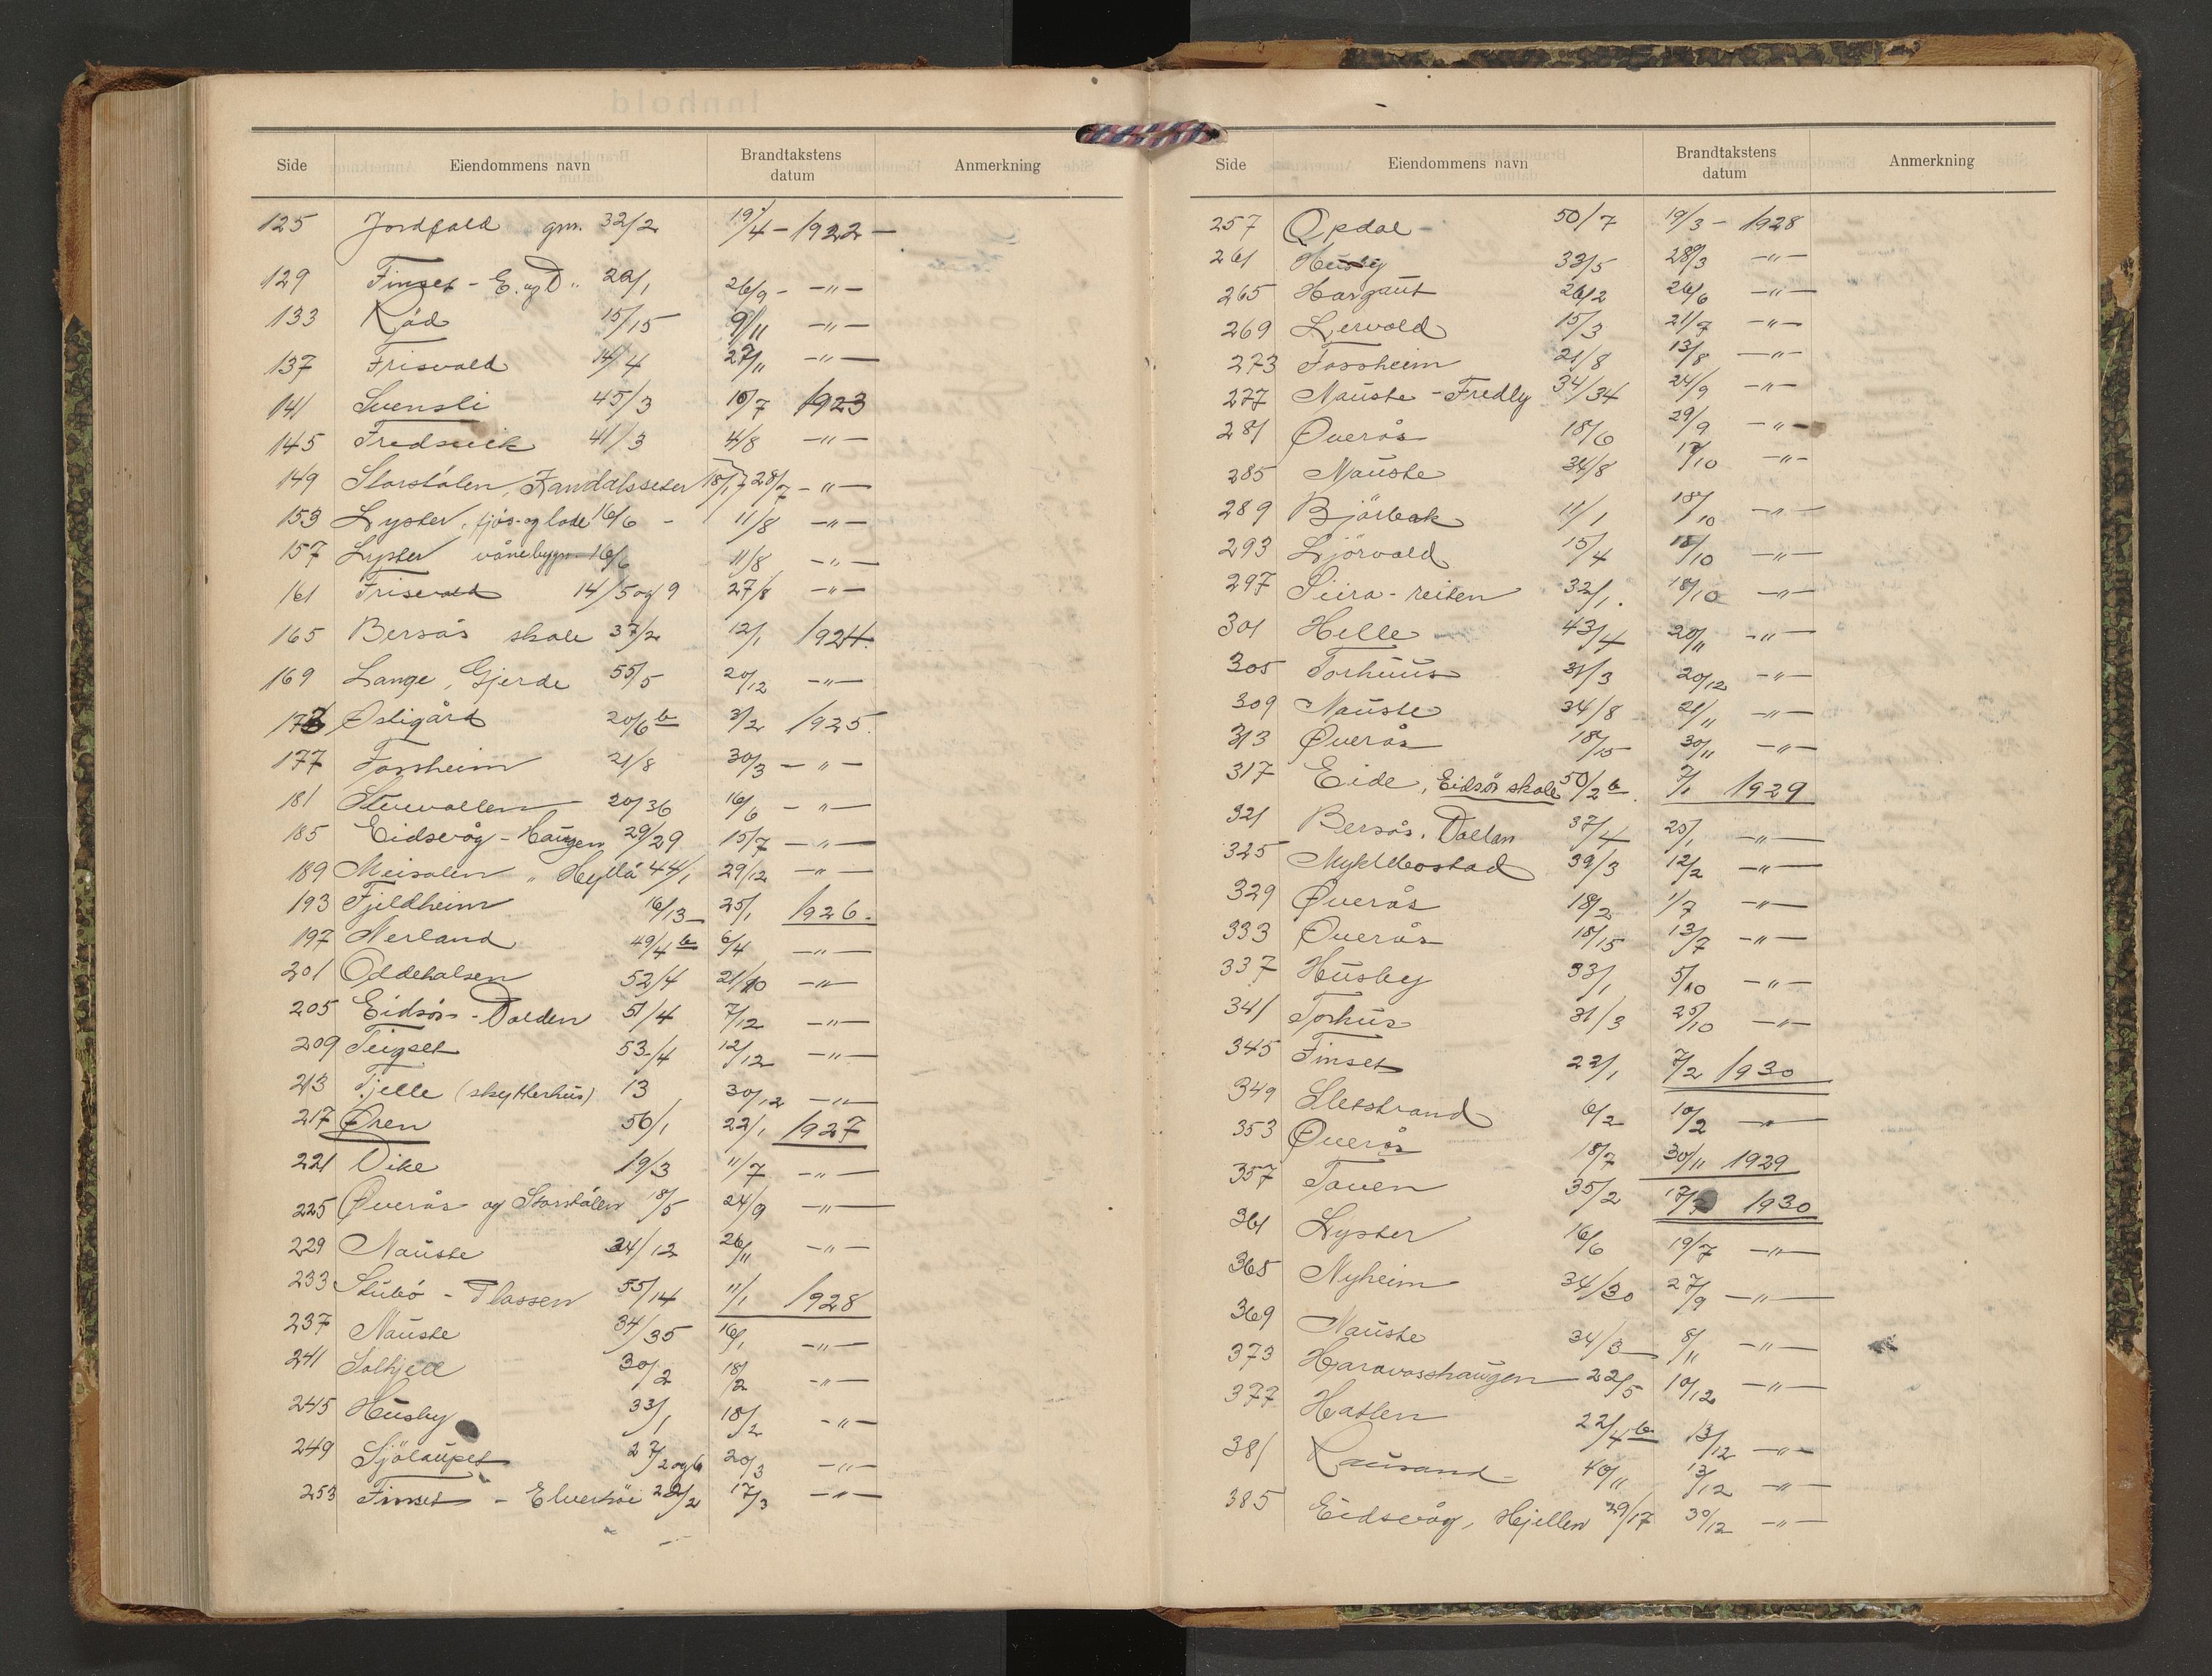 Side Eiendommens navn Brandtakstens datum Anmerkning
125 Jordfald gnr. 32/2 19/4 - 1922 -
129 Finset - E. og D. " 22/1 26/9 - -"-
133 Råd 15/15 9/11 -"-
137 Frisvold 14/4 27/11 -"-
141 Svensli 45/3 10/7 1923
145 Fredsvik 41/3 4/8 -"-
149 Storstålen, Zandalsseter 18/1,7 28/7 -"-
153 Lyster, fjøs- og lade 16/6 - 11/8 -"-
157 Lyster vånebygn. 16/6 11/8 -"-
161 Frisvold 14/5 og 9 27/8 -"-
165 Bersås skole 37/2 12/1 1924.
169 Lange, Gjerde 55/5 20/12 -"-
173 Østigård 20/6 b 3/2 1925.
177 Forsheim 21/8 30/3 - " -
181 Stuevollen 20/36 16/6 - " -
185 Eidsvåg - Haugen 29/29 15/7 -"-
189 Meisalen " Hyllå 44/1 29/12 -"-
193 Fjeldheim 16/13 25/1 1926.
197 Nerland 49/4 b 6/4 -"-
201 Oddehalsen 52/4 21/10 -"-
205 Eidsör - Dalden 51/4 7/12 -"-
209 Teigset 53/4 12/12 -"-
213 Tjelle (skytterhus) 13 30/12 -"-
217 Øren 56/1 22/1 1927
221 Vike 19/3 11/7 -"-
225 Øverås og Storstålen 18/5 24/9 -"-
229 Nauste 34/12 26/11 -"-
233 Stubö - Plassen 55/14 11/1 1928
237 Nauste 34/35 16/1 -"-
241 Solhjell 30/2 18/2 -"-
245 Husby 33/1 18/2 -"-
249 Sjölaupet 27/2 og 6 20/3 -"-
253 Finset - Elverhöi 22/2 17/3 -"-
Side Eiendommens navn Brandtakstens datum Anmerkning
257 Opdal - 50/7 19/3 - 1928
261 Husby 33/5 28/3 -"-
265 Hargaut 26/2 26/6 -"-
269 Lervold 15/3 21/7 -"-
273 Fossheim 21/8 13/8 -"-
277 Nauste - Fredly 34/34 24/9 -"-
281 Øverås 18/6 29/9 -"-
285 Nauste 34/8 17/10 -"-
289 Björbak 11/1 18/10 -"-
293 Ljörvold 15/4 18/10 -"-
297 Siira - reiten 32/1. 18/10 -"-
301 Helle 43/4 20/11 -"-
305 Torhuus 31/3 20/12 -"-
309 Nauste 34/8 21/11 -"-
313 Øverås 18/15 30/11 -"-
317 Eide, Eidsör skole 50/2 b. 7/1 1929
321 Bersås. Dallan 37/4 25/1 -"-
325 Myklebostad 39/3 12/2 -"-
329 Øverås 18/2 1/7 -"-
333 Øverås 18/15 13/7 -"-
337 Husby 33/1 5/10 -"-
341 Torhus 31/3 25/10 -"-
345 Finset 22/1 7/2 1930
349 Sletstrand 6/2 10/2 -"-
353 Øverås 18/7 30/11 1929
357 Toven 35/2 17/ 1930
361 Lyster 16/6 19/7 -"-
365 Nyheim 34/30 27/9 -"-
369 Nauste 34/3 8/11 -"-
373 Haravosshaugen 22/5 10/12 -"-
377 Hatlen 22/4 b 13/12 -"-
381 Rausand 40/11 13/12 -"-
385 Eidsvåg, Hjellen 29/17 30/12 -"-